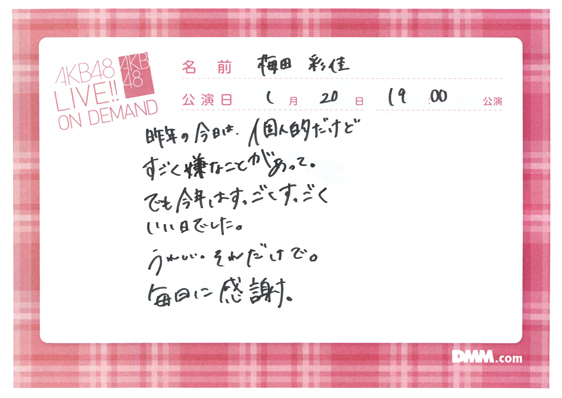 AKB48
LIVE!!
ON DEMAND
AKB
48
名前 梅田 彩佳
公演日 1月20日 19:00 公演
昨年の今日は、個人的だけど
すごく嫌なことがあって。
でも今年はすっごくすっごく
いい日でした。
うれしい。それだけで。
毎日に感謝。
DMM.com